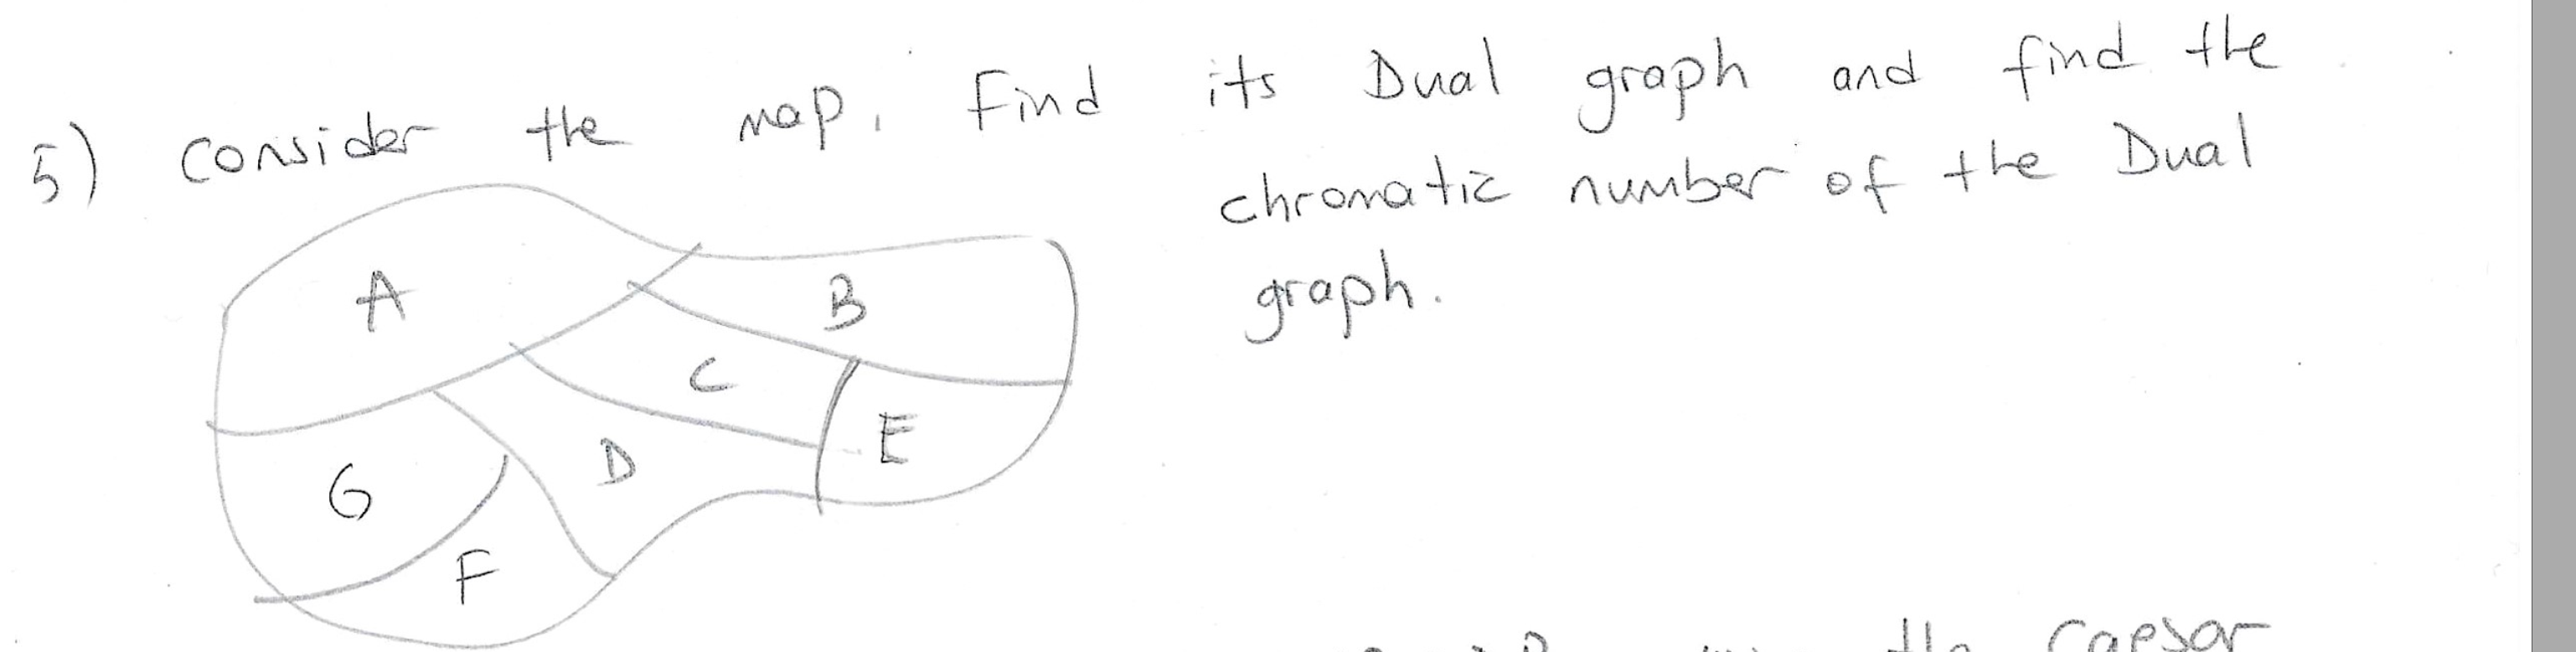 5) consider the map. Find its Dual graph and find the
chromatic number of the Dual
graph.
A
B
C
E
D
G
F
the Caesar